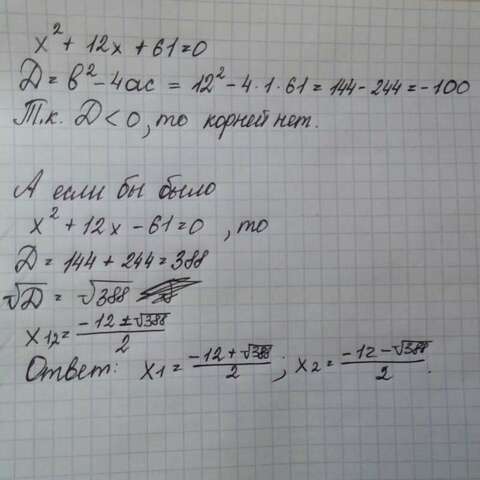 x² + 12x + 61 = 0
D = b² - 4ac = 12² - 4 · 1 · 61 = 144 - 244 = -100
Т.к. D < 0, то корней нет.
А если бы было
x² + 12x - 61 = 0, то
D = 144 + 244 = 388
√D = √388
x₁,₂ = (-12 ± √388)/2
Ответ: x₁ = (-12 + √388)/2; x₂ = (-12 - √388)/2.